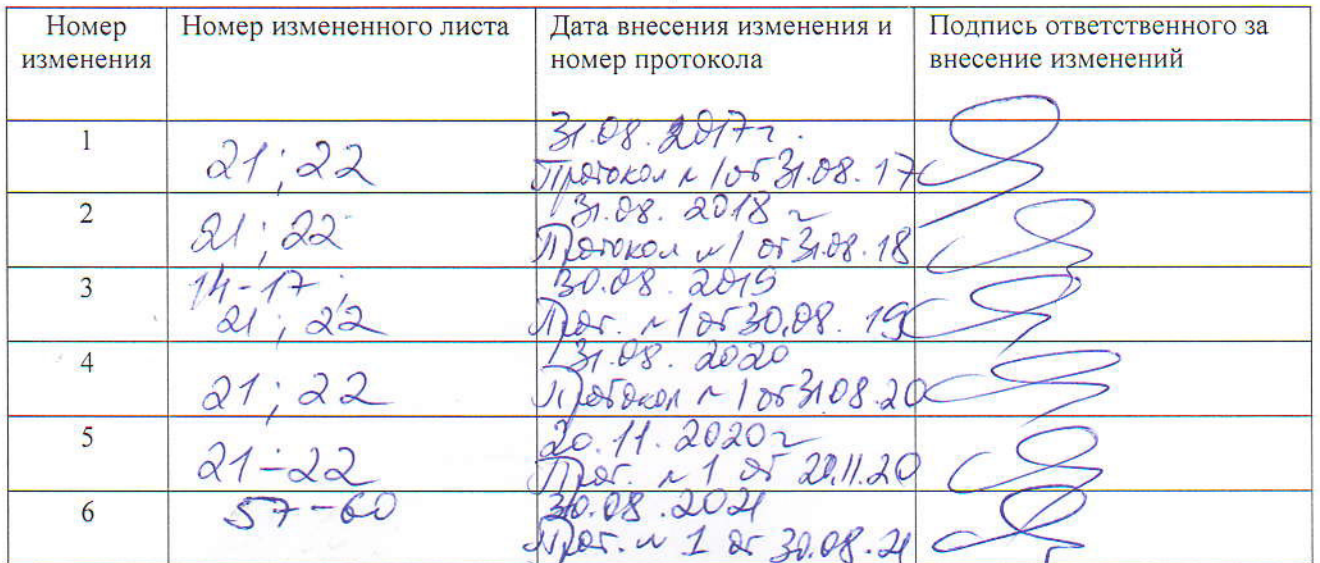 Номер изменения
Номер измененного листа
Дата внесения изменения и номер протокола
Подпись ответственного за внесение изменений
1
21; 22
31.08.2017г.
Протокол №1 от 31.08.17
2
21; 22
31.08.2018 г
Протокол №1 от 31.08.18
3
14-17;
21; 22
30.08.2019
Прот. №1 от 30.08.19
4
21; 22
31.08.2020
Протокол №1 от 31.08.20
5
21-22
20.11.2020г
Прот. №1 от 20.11.20
6
57-60
30.08.2021
Прот. №1 от 30.08.21